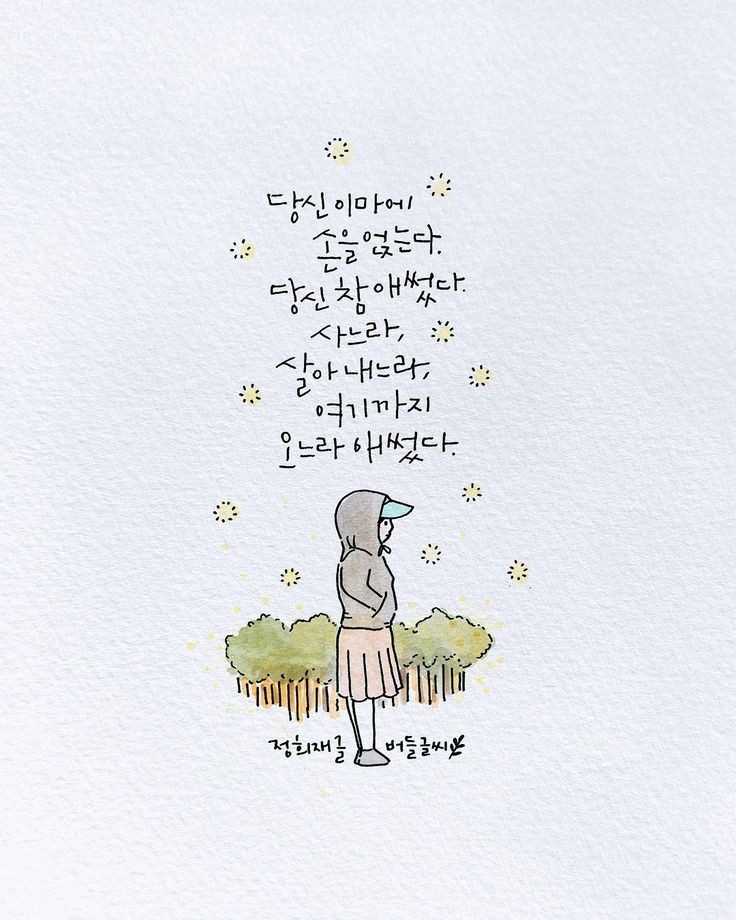 당신 이마에
손을 얹는다.
당신 참 애썼다.
사느라,
살아 내느라,
여기까지
오느라 애썼다.
정희재 글 버들글씨